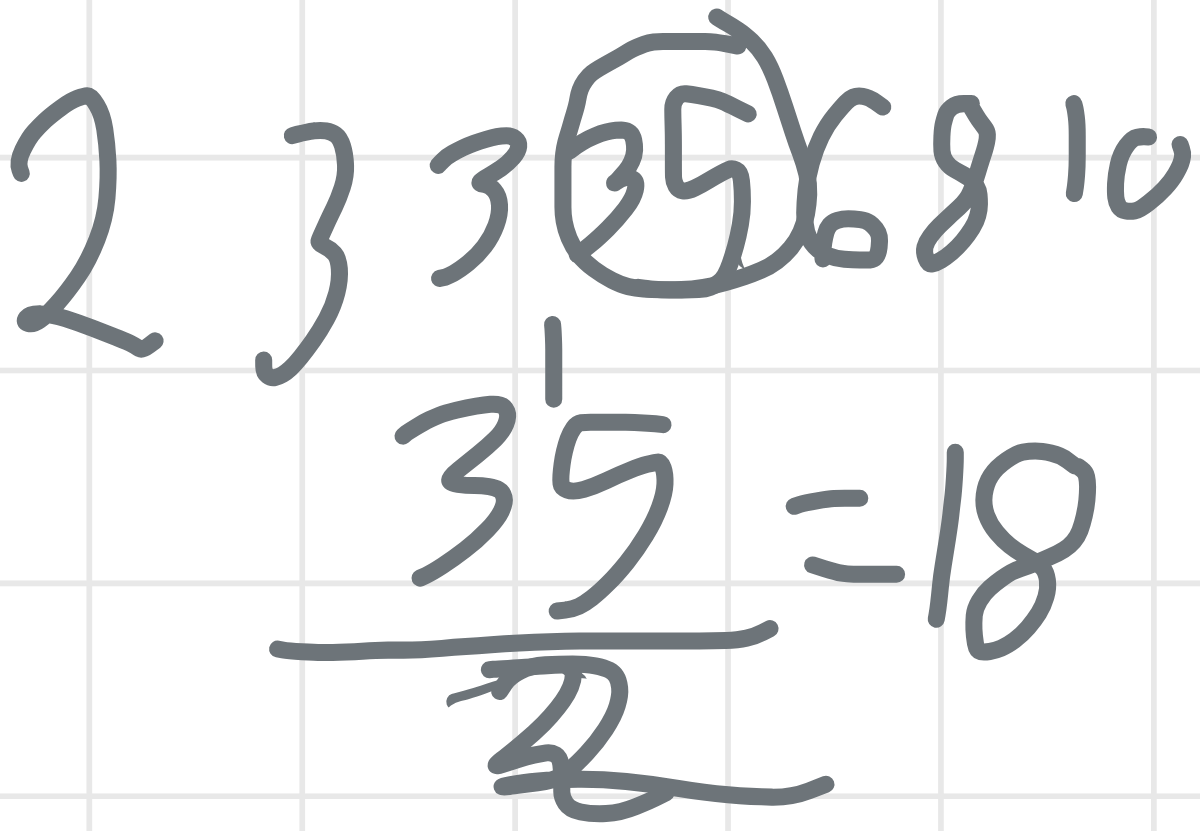 2 3 3 3 5 6 8 10
1
35 = 18
2